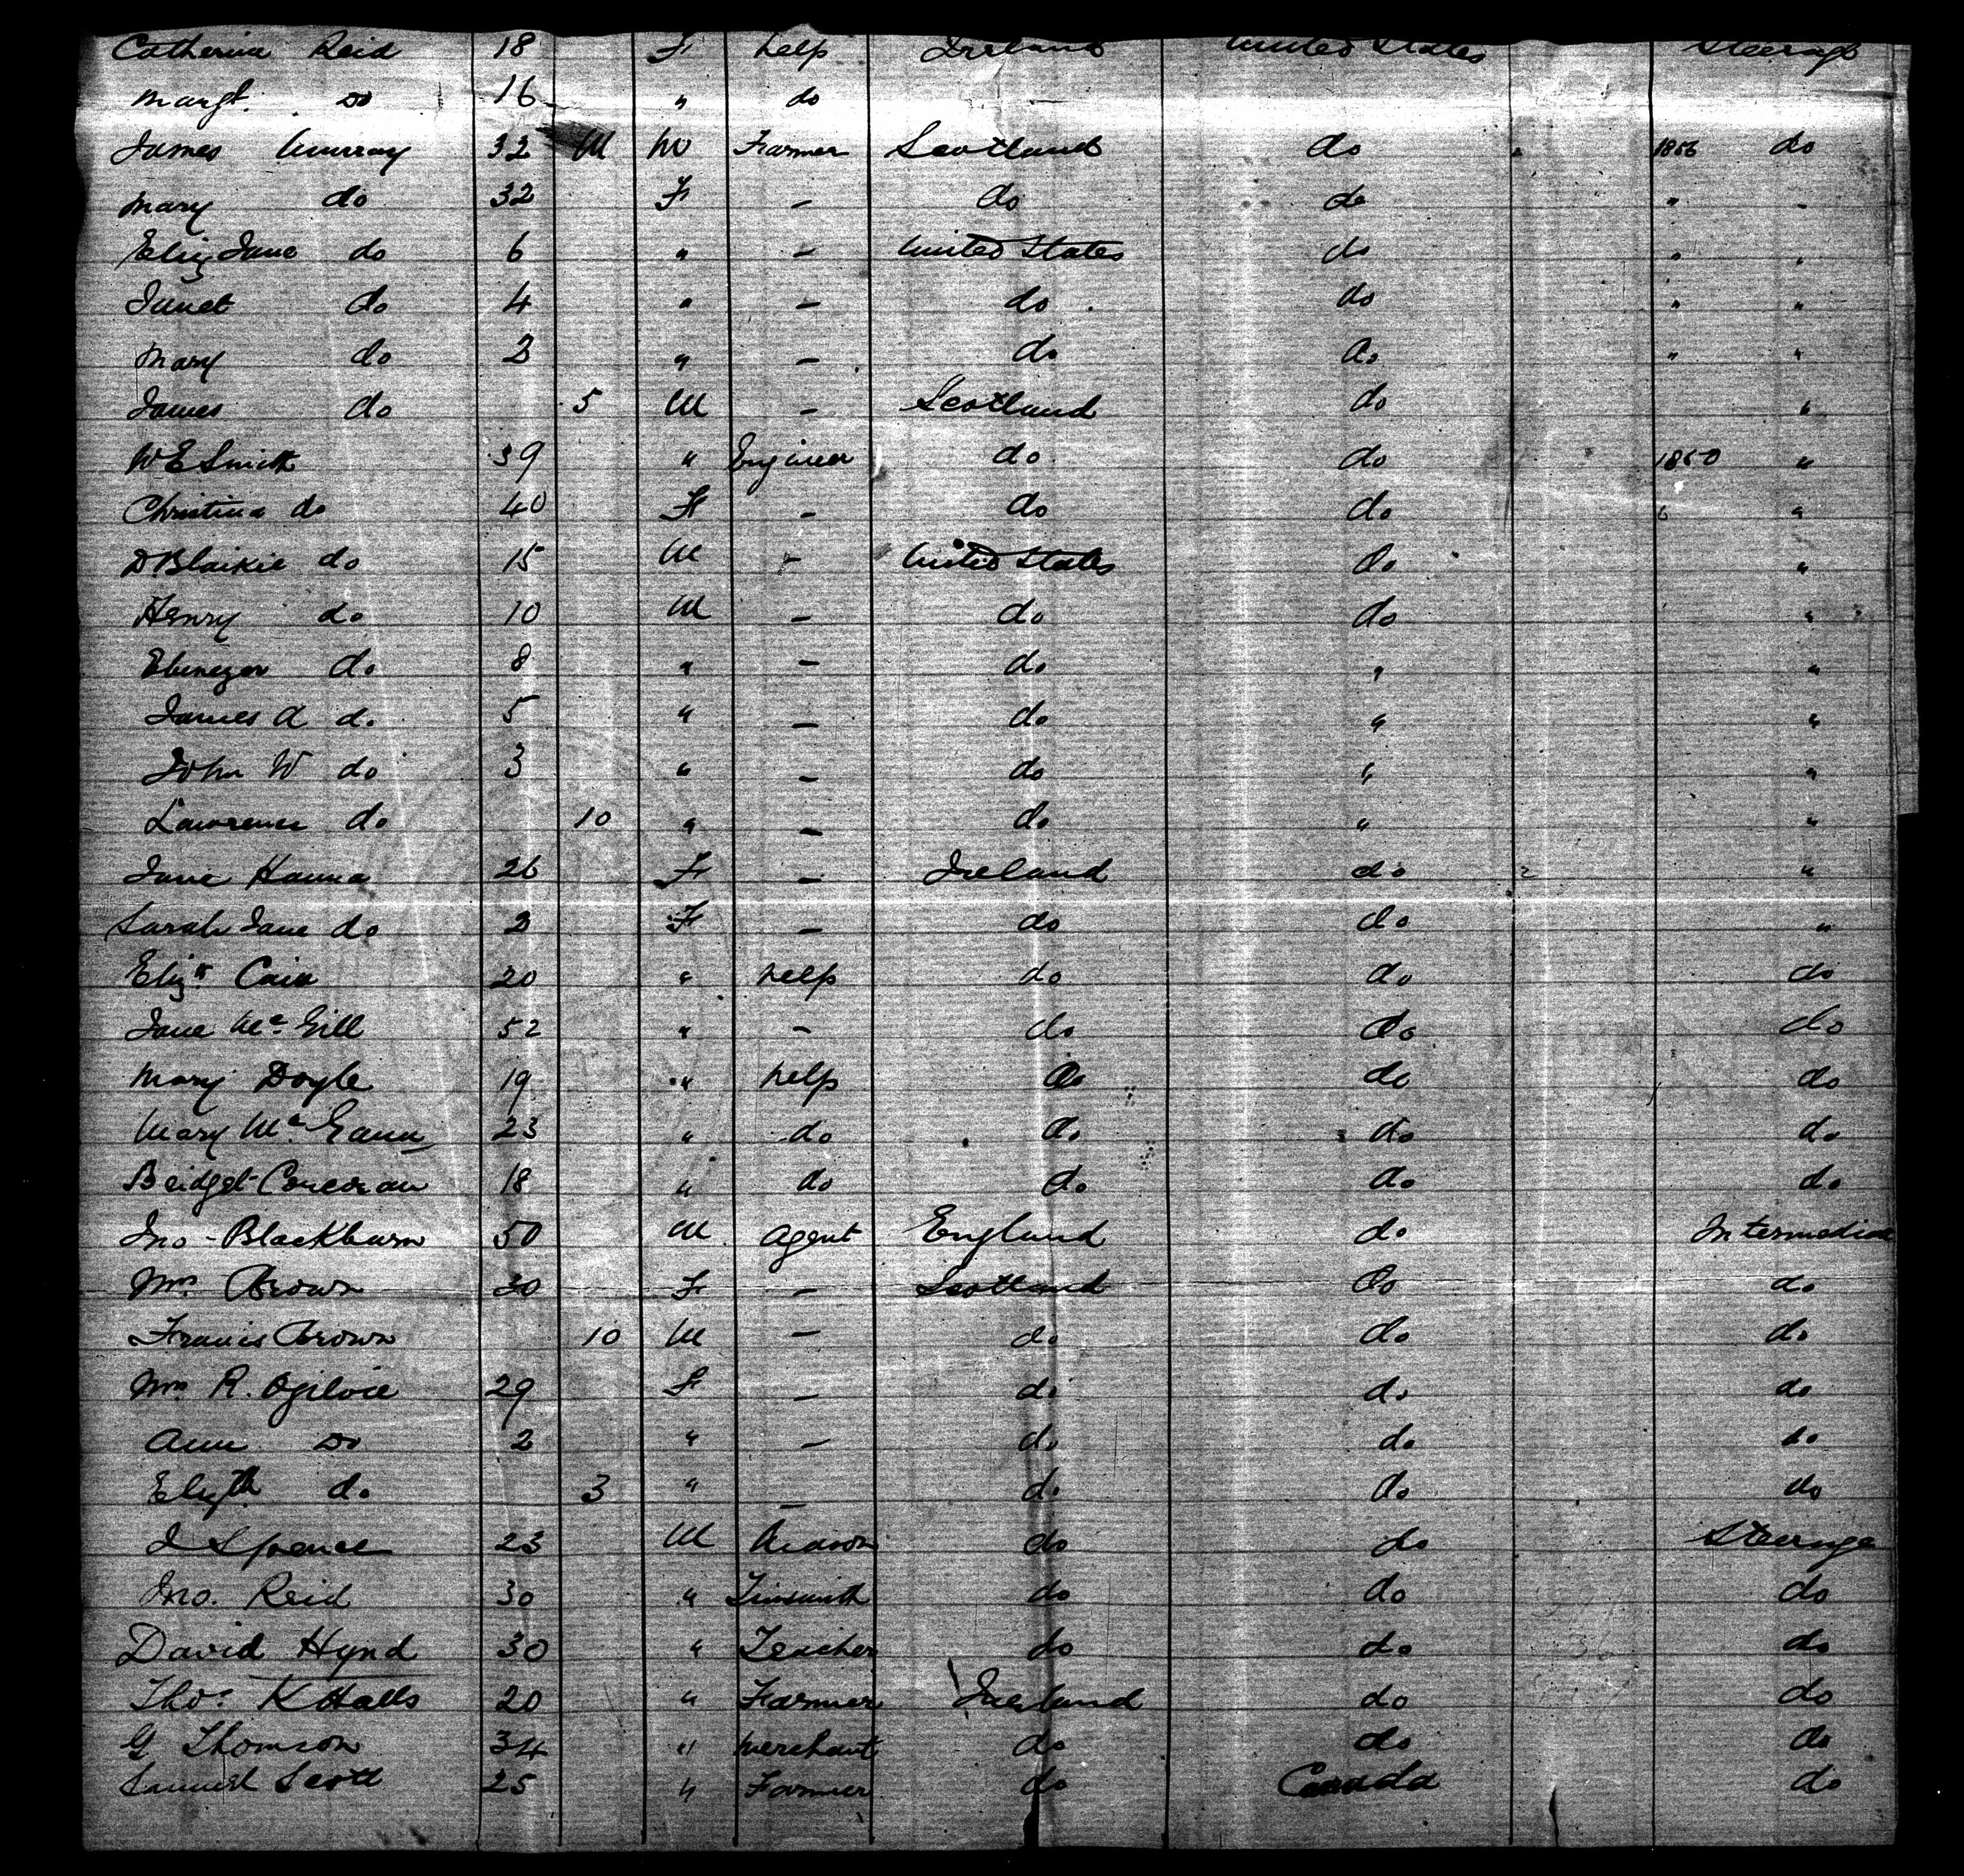 Catherine Reid 18 F help Ireland United States Steerage
Margt. Do 16 " do
James Murray 32 M M Farmer Scotland do 1856 do
Mary do 32 F - do do " "
Eliz Jane do 6 " - United States do " "
Janet do 4 " - do do " "
Mary do 2 " - do do " "
James do 5 M - Scotland do "
W E Smith 39 " Engineer do do 1850 "
Christina do 40 F - do do " "
D. Blaikie do 15 M - United States do "
Henry do 10 M - do do "
Ebenezer do 8 " - do " "
James A do 5 " - do " "
John W do 3 " - do " "
Lawrence do 10 " - do " "
Jane Hanna 26 F - Ireland do "
Sarah Jane do 2 F - do do "
Elizth Cain 20 " help do do do
Jane Mc Gill 52 " - do do do
Mary Doyle 19 " help do do do
Mary Mc Gann 23 " do do do do
Bridget Corcoran 18 " do do do do
Jno - Blackburn 50 M agent England do Intermediate
Mrs Brown 30 F - Scotland do do
Francis Brown 10 M - do do do
Mrs R. Ogilvie 29 F - do do do
Ann Do 2 " - do do do
Elizth do 3 " - do do do
J Spence 23 M do do Steerage
Jno. Reid 30 " Tinsmith do do do
David Hynd 30 " Teacher do do do
Thos K Halls 20 " Farmer Ireland do do
G Thomson 34 " Merchant do do do
Samuel Scott 25 " Farmer do Canada do